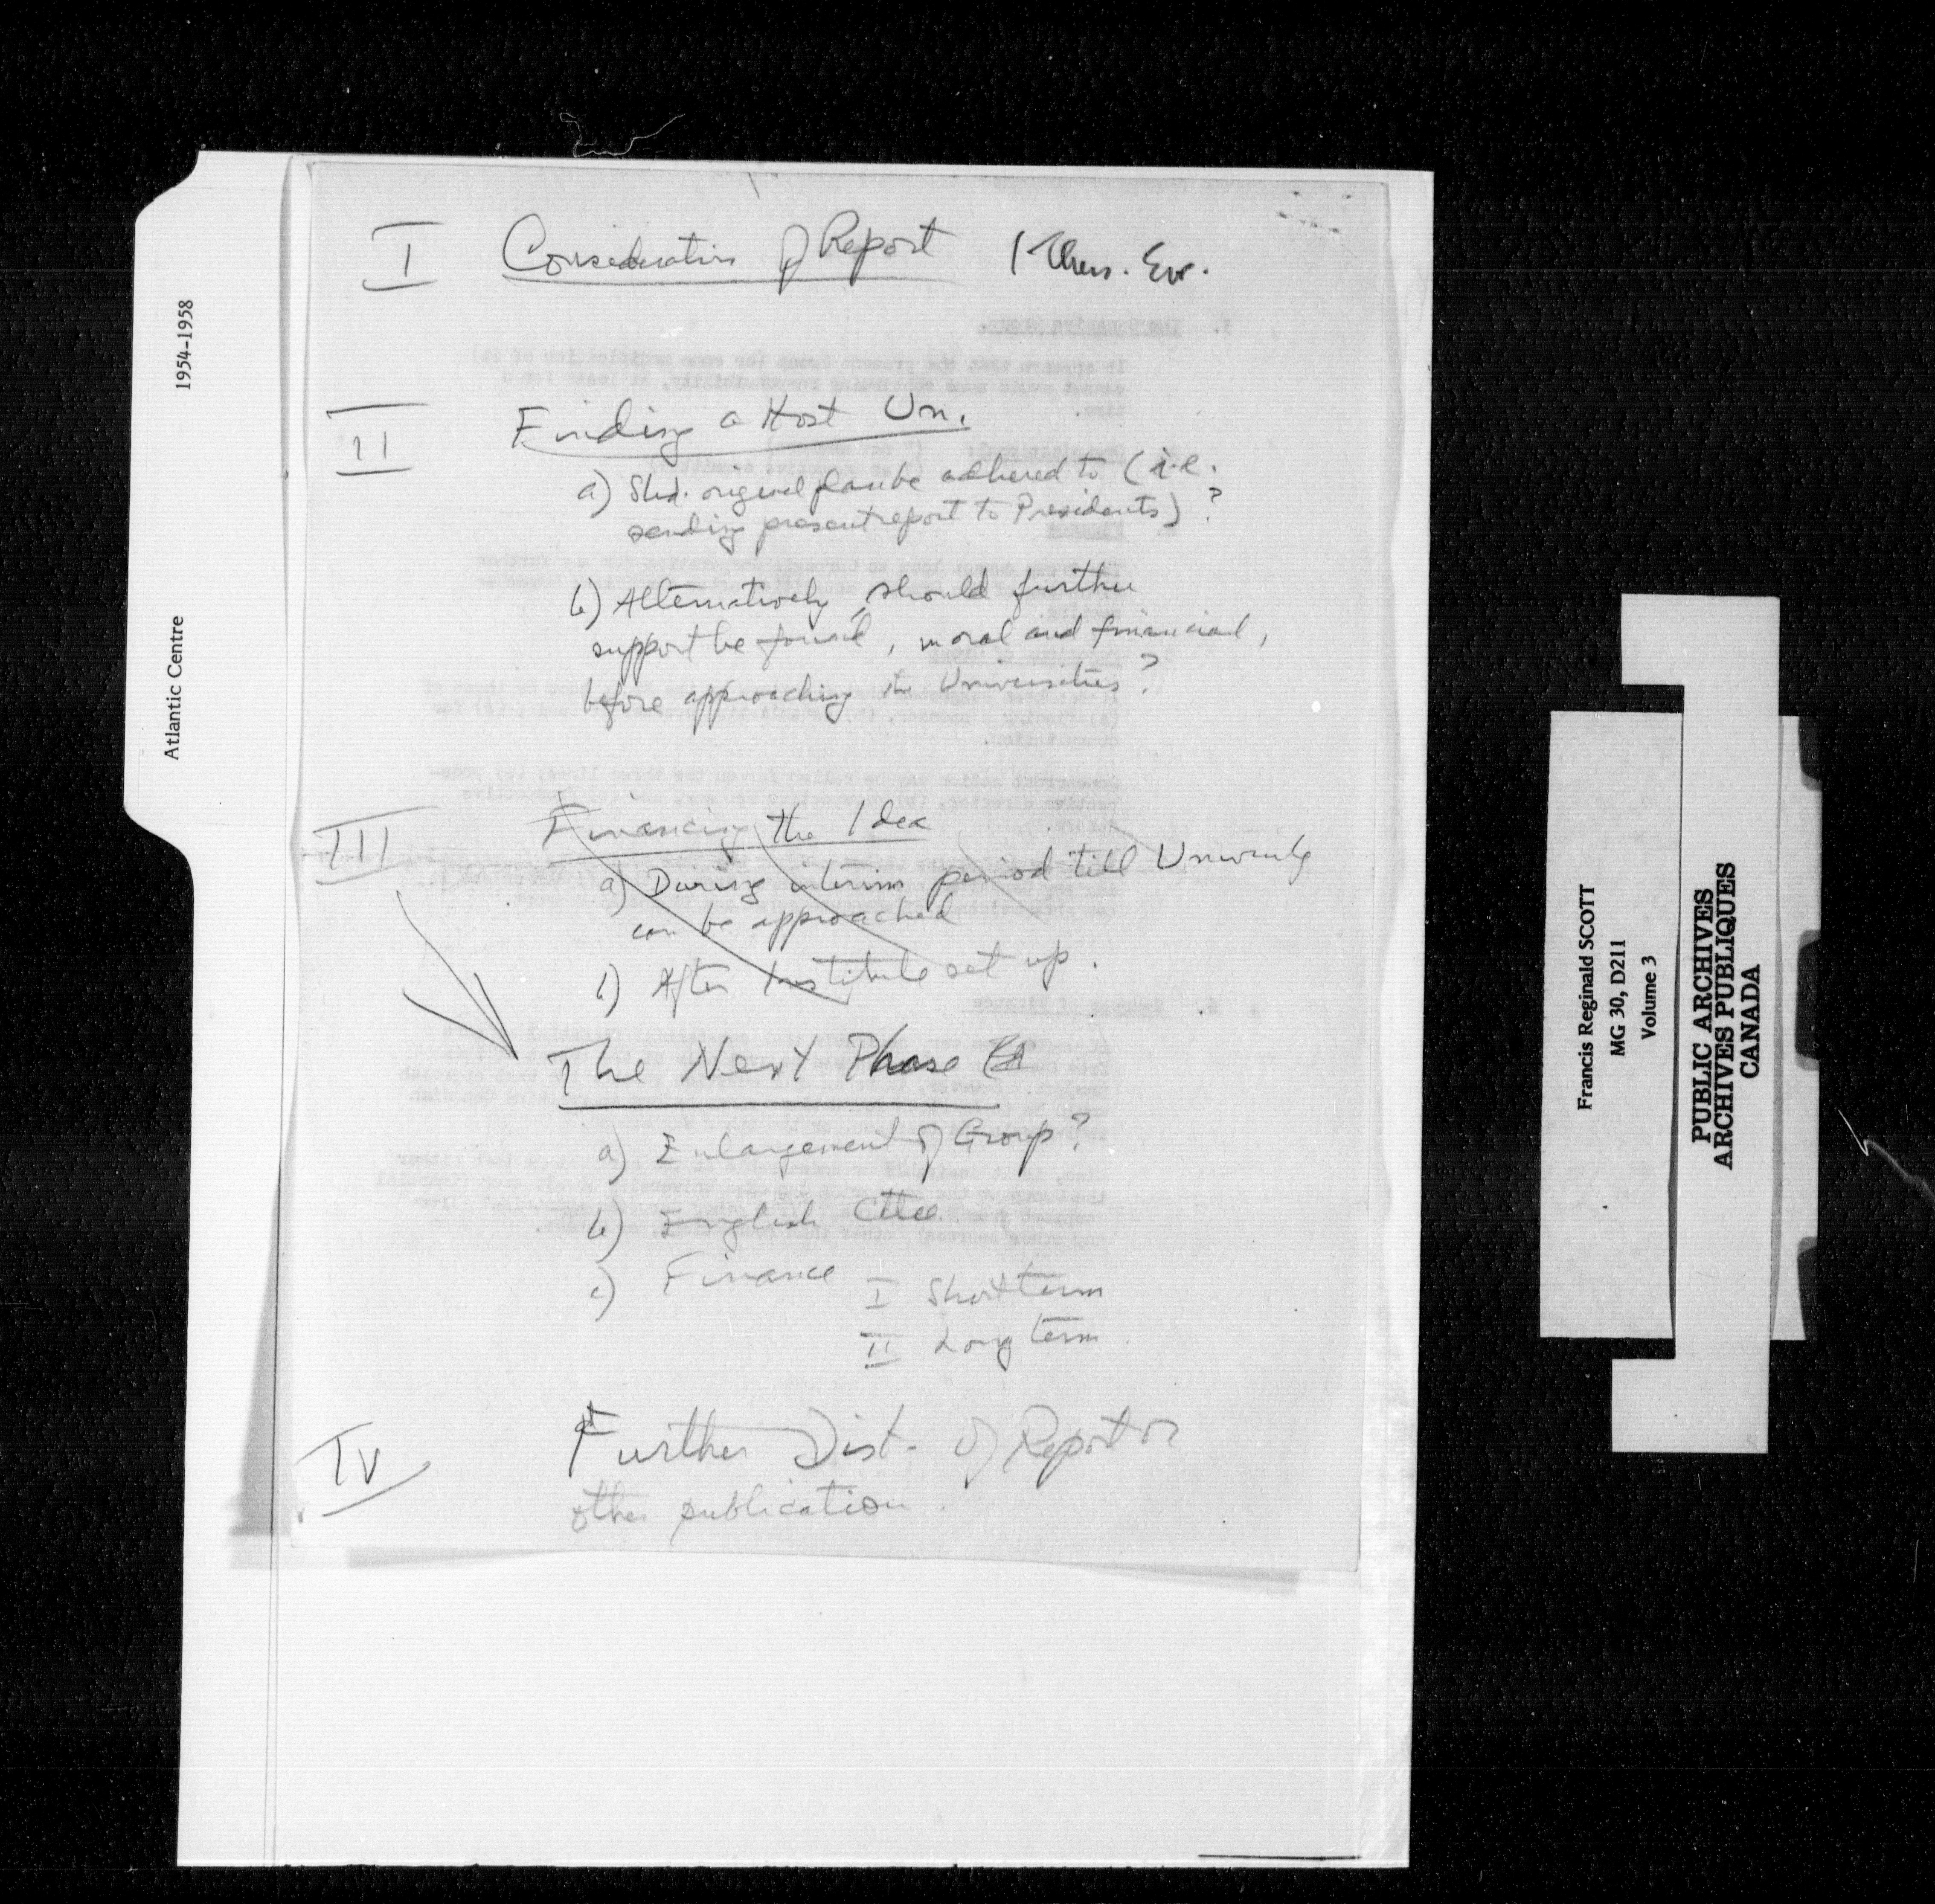 I Consideration of Report (Thurs. Eve.
II Finding a Host Un.
a) Shd. original plan be adhered to (i.e.
sending present report to Presidents)?
b) Alternatively, should further
support be found, moral and financial,
before approaching the Universities?
III Financing the Idea
a) During interim period till University
can be approached
b) After Institute set up.
The Next Phase
a) Enlargement of Group?
b) English Cttee.
c) Finance I Short term
II Long term
IV Further Dist. of Report or
other publication.
Atlantic Centre 1954-1958
Francis Reginald SCOTT
MG 30, D211
Volume 3
PUBLIC ARCHIVES
ARCHIVES PUBLIQUES
CANADA